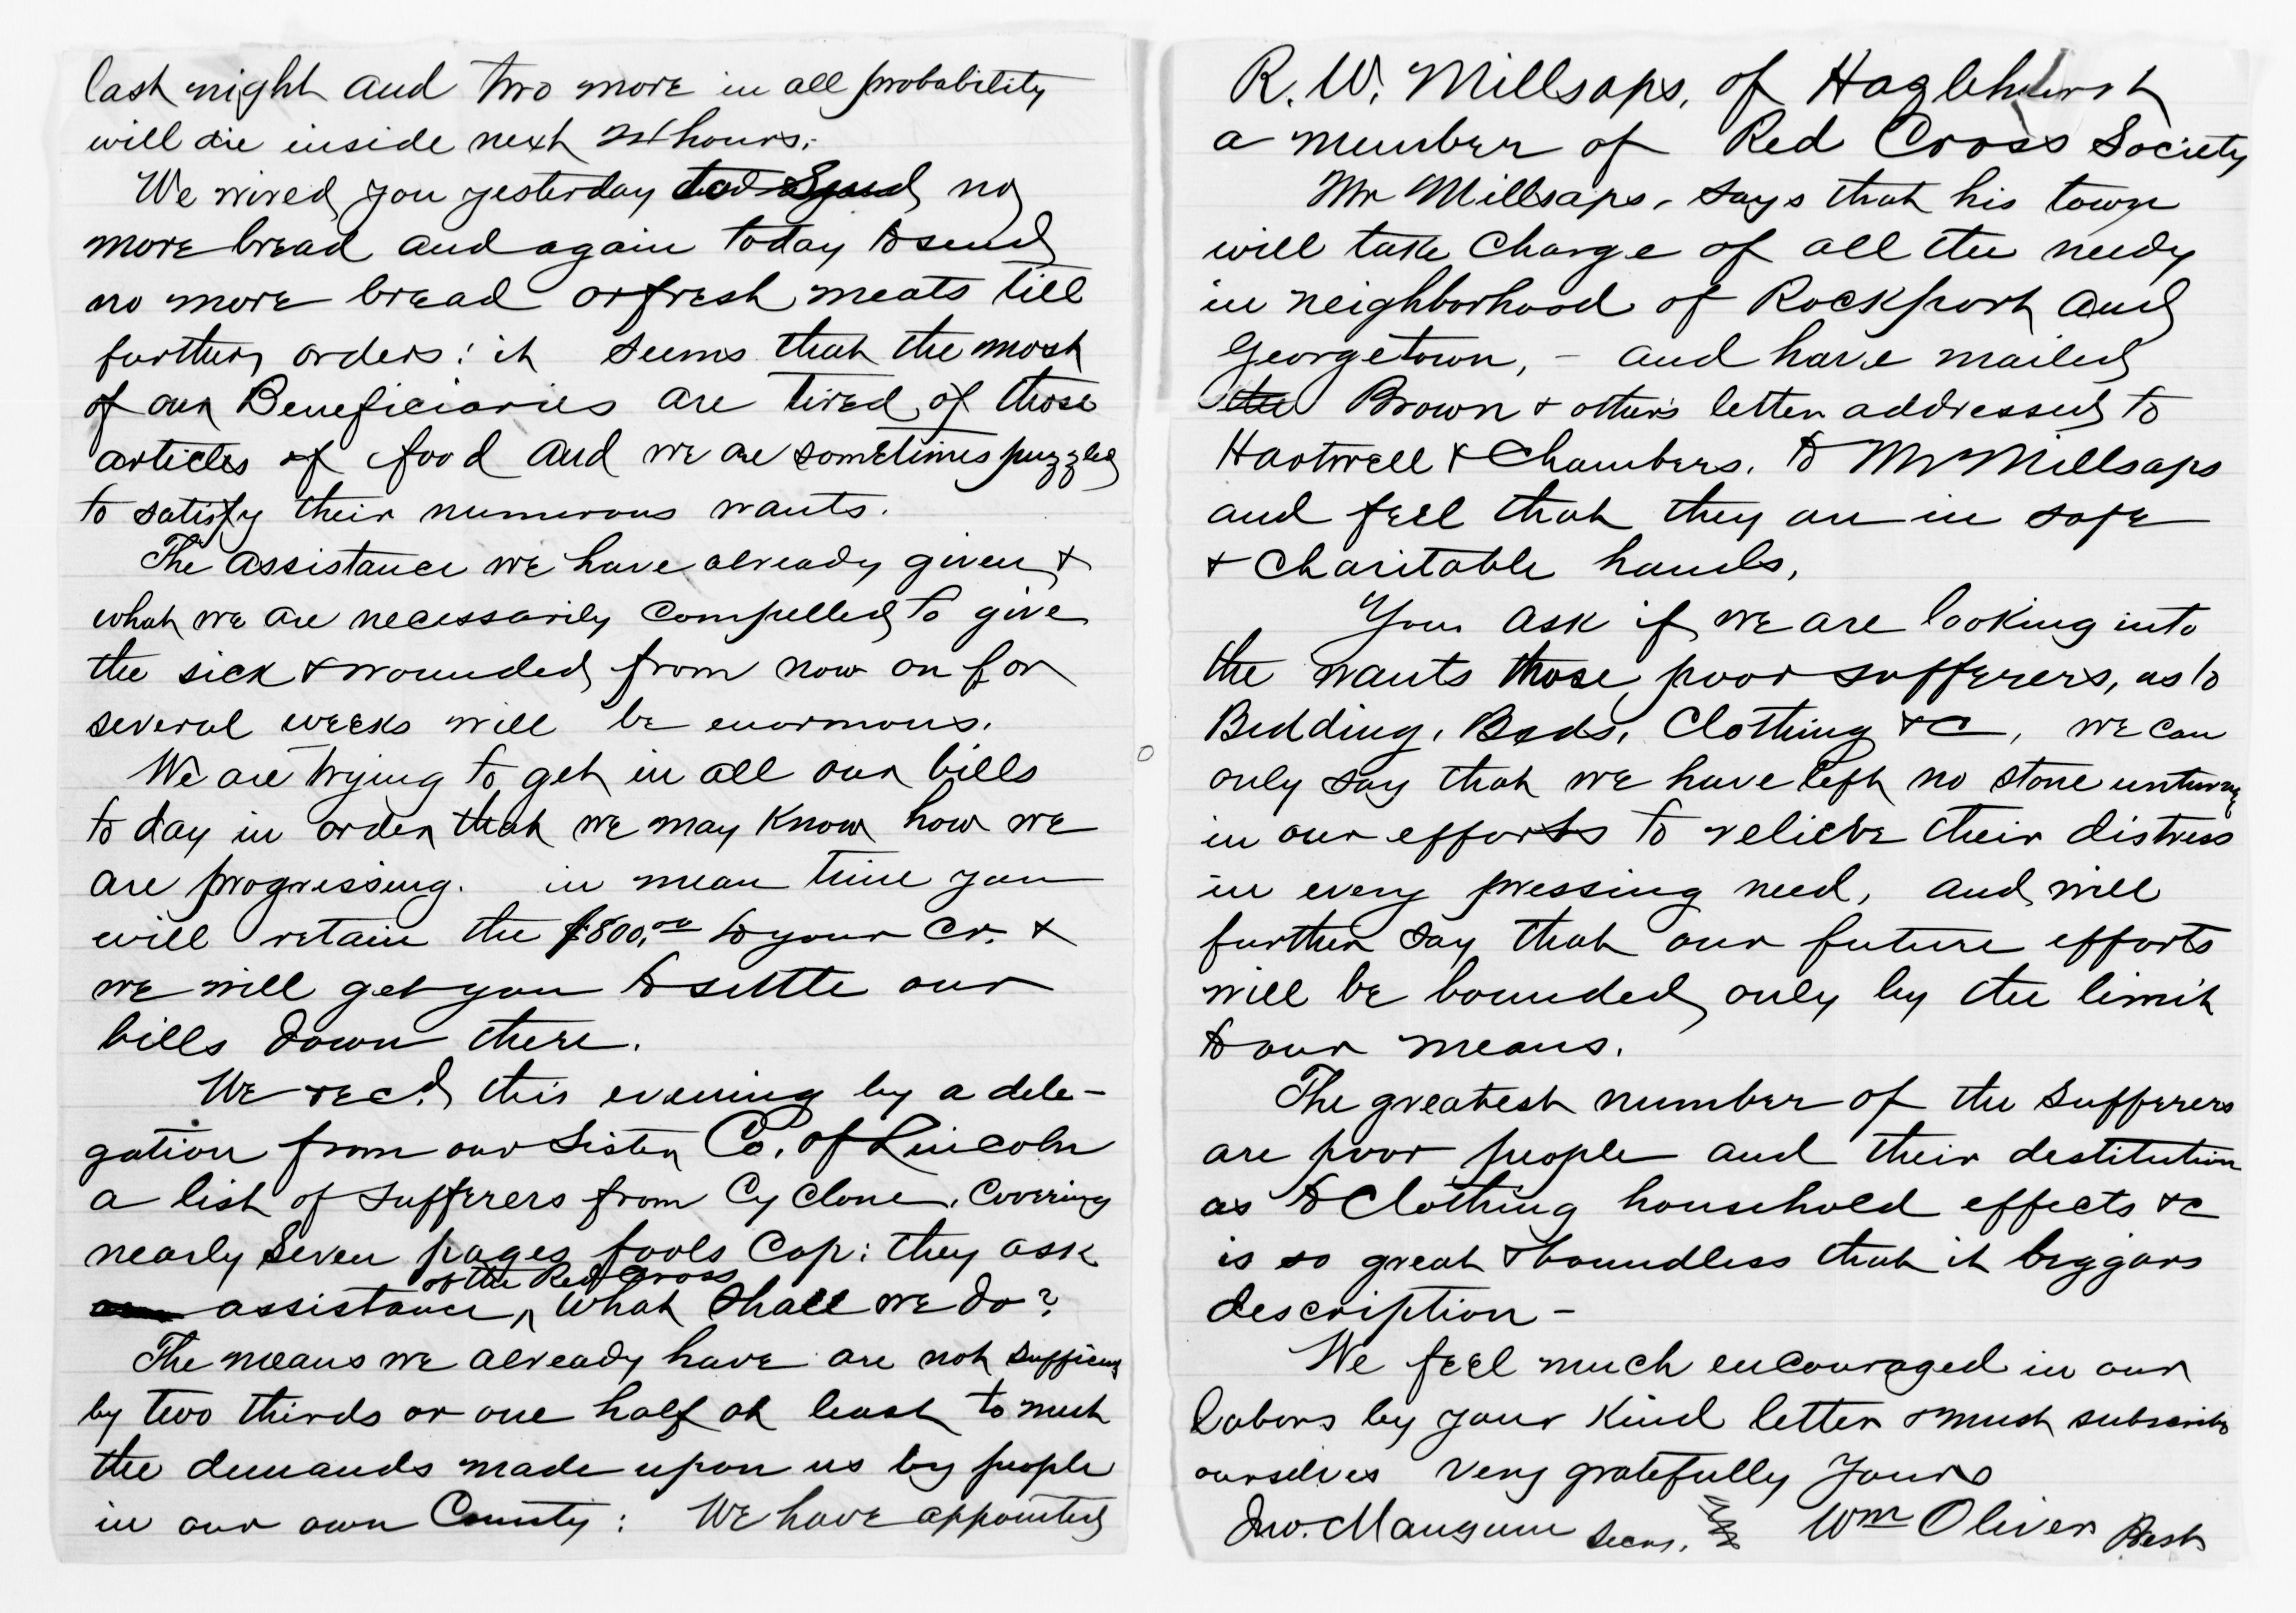 last night and two more in all probability
will die inside next 24 hours.
We wired you yesterday to send no
more bread and again today to send
no more bread or fresh meats till
further orders: it seems that the most
of our Beneficiaries are tired of those
articles of food and we are sometimes puzzled
to satisfy their numerous wants.
The assistance we have already given &
what we are necessarily compelled to give
the sick & wounded from now on for
several weeks will be enormous.
We are trying to get in all our bills
to day in order that we may know how we
are progressing. in mean time you
will retain the $800.00 to your Cr. &
we will get you to settle our
bills down there.
We rec'd this evening by a dele-
gation from our Sister Co. of Lincoln
a list of sufferers from Cyclone, Covering
nearly seven pages fools Cap: they ask
of the Red Cross
assistance, What Shall we do?
The means we already have are not sufficient
by two thirds or one half at least to meet
the demands made upon us by people
in our own County: We have appointed
R. W. Millsaps, of Hazlehurst
a member of Red Cross Society
Mr Millsaps, says that his town
will take Charge of all the needy
in neighborhood of Rockport and
Georgetown, – and have mailed
the Brown & others letter addressed to
Hartwell & Chambers, to Mr Millsaps
and feel that they are in safe
& Charitable hands,
You ask if we are looking into
the wants those poor sufferers, as to
Bedding, Beds, Clothing &c, we can
only say that we have left no stone unturned
in our efforts to relieve their distress
in every pressing need, and will
further say that our future efforts
will be bounded only by the limit
to our means.
The greatest number of the Sufferers
are poor people and their destitution
as to Clothing household effects &c
is so great & boundless that it beggars
description –
We feel much encouraged in our
labors by your kind letter & must subscribe
ourselves Very gratefully Yours
Jno. Mangum Secy. Wm Oliver Prest